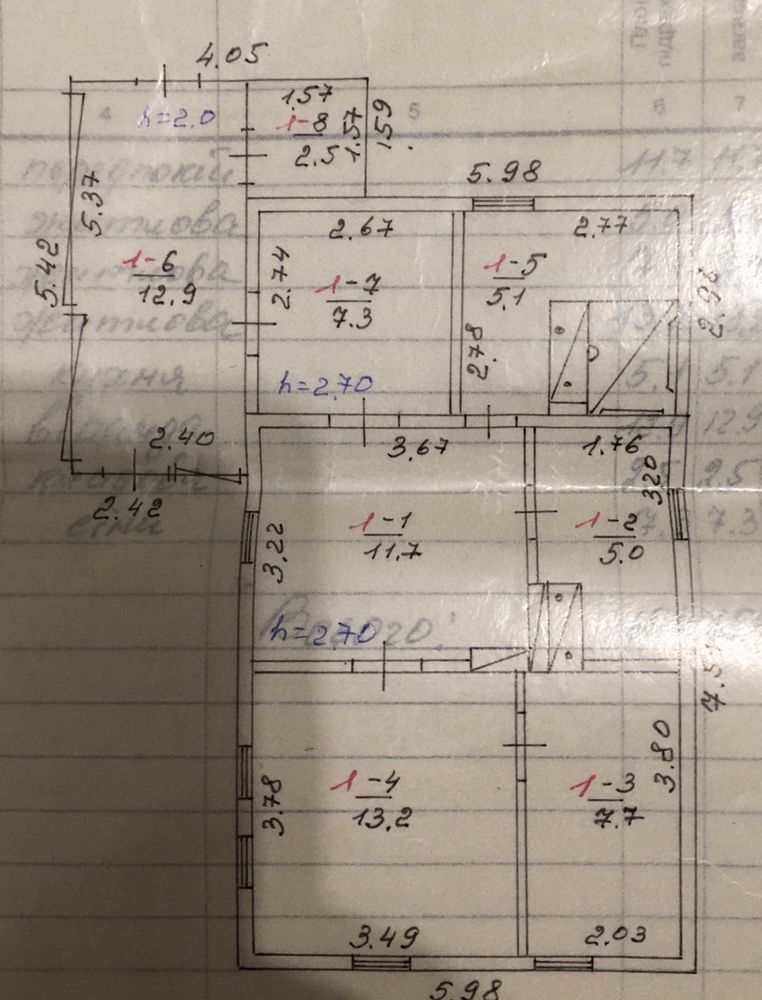 4.05
4
5
6
7
h=2.0
1.57
1-8
2.5
1.57
1.59
передпокій
11.7
5.98
5.37
5.42
1-6
12.9
2.67
2.77
2.74
1-7
7.3
1-5
5.1
2.78
2.98
h=2.70
житлова
житлова
житлова
кухня
5.1
5.1
12.9
2.5
2.5
7.3
2.40
2.42
3.67
1.76
3.20
3.22
1-1
11.7
1-2
5.0
h=2.70
Всього:
3.78
1-4
13.2
1-3
7.7
3.80
3.49
2.03
5.98